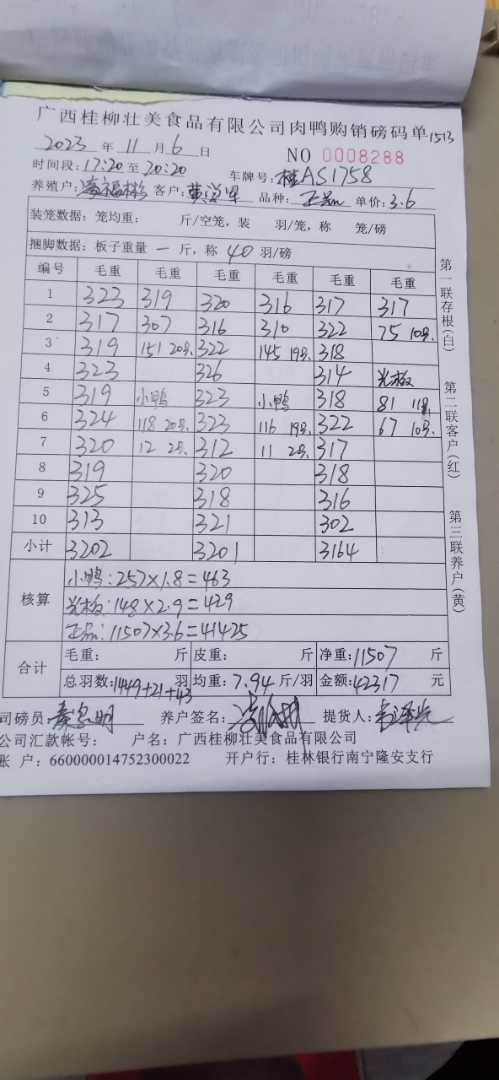 广西桂柳壮美食品有限公司肉鸭购销磅码单 1513
2023 年 11 月 6 日 NO 0008288
时间段: 17:20 至 20:20 车牌号: 桂AS1758
养殖户: 客户: 黄 品种: 正品 单价: 3.6
装笼数据: 笼均重: 斤/空笼, 装 羽/笼, 称 笼/磅
捆脚数据: 板子重量 一 斤, 称 40 羽/磅
编号 毛重 毛重 毛重 毛重 毛重 毛重
1 323 319 320 316 317 317
2 317 307 316 310 322 75 10只
3 319 151 20只 322 145 19只 318
4 323 326 314 光板
5 319 小鸭 323 小鸭 318 81 11只
6 324 118 20只 323 116 19只 322 67 10只
7 320 12 2只 312 11 2只 317
8 319 320 318
9 325 318 316
10 313 321 302
小计 3202 3201 3164
核算 小鸭: 257×1.8=463
光板: 148×2.9=429
正品: 11507×3.6=41425
合计 毛重: 斤 皮重: 斤 净重: 11507 斤
总羽数: 1449+21+43 羽 均重: 7.94 斤/羽 金额: 42317 元
司磅员: 养户签名: 提货人:
公司汇款帐号: 户名: 广西桂柳壮美食品有限公司
账 户: 660000014752300022 开户行: 桂林银行南宁隆安支行
第一联存根(白)
第二联客户(红)
第三联养户(黄)